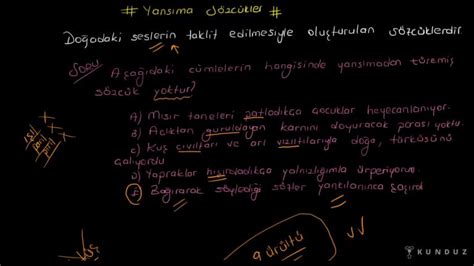 # Yansıma Sözcükler #
Doğadaki seslerin taklit edilmesiyle oluşturulan sözcüklerdir.
Soru Aşağıdaki cümlelerin hangisinde yansımadan türemiş
sözcük yoktur?
A) Mısır taneleri patladıkça çocuklar heyecanlanıyor.
B) Açlıktan guruldayan karnını doyuracak parası yoktu.
C) Kuş cıvıltıları ve arı vızıltılarıyla doğa, türküsünü
çalıyordu
D) Yapraklar hışırdadıkça yalnızlığımla ürperiyorum.
E) Bağırarak söylediği sözler yankılanınca şaşırdı
ışıl
parıl
gürültü
KUNDUZ